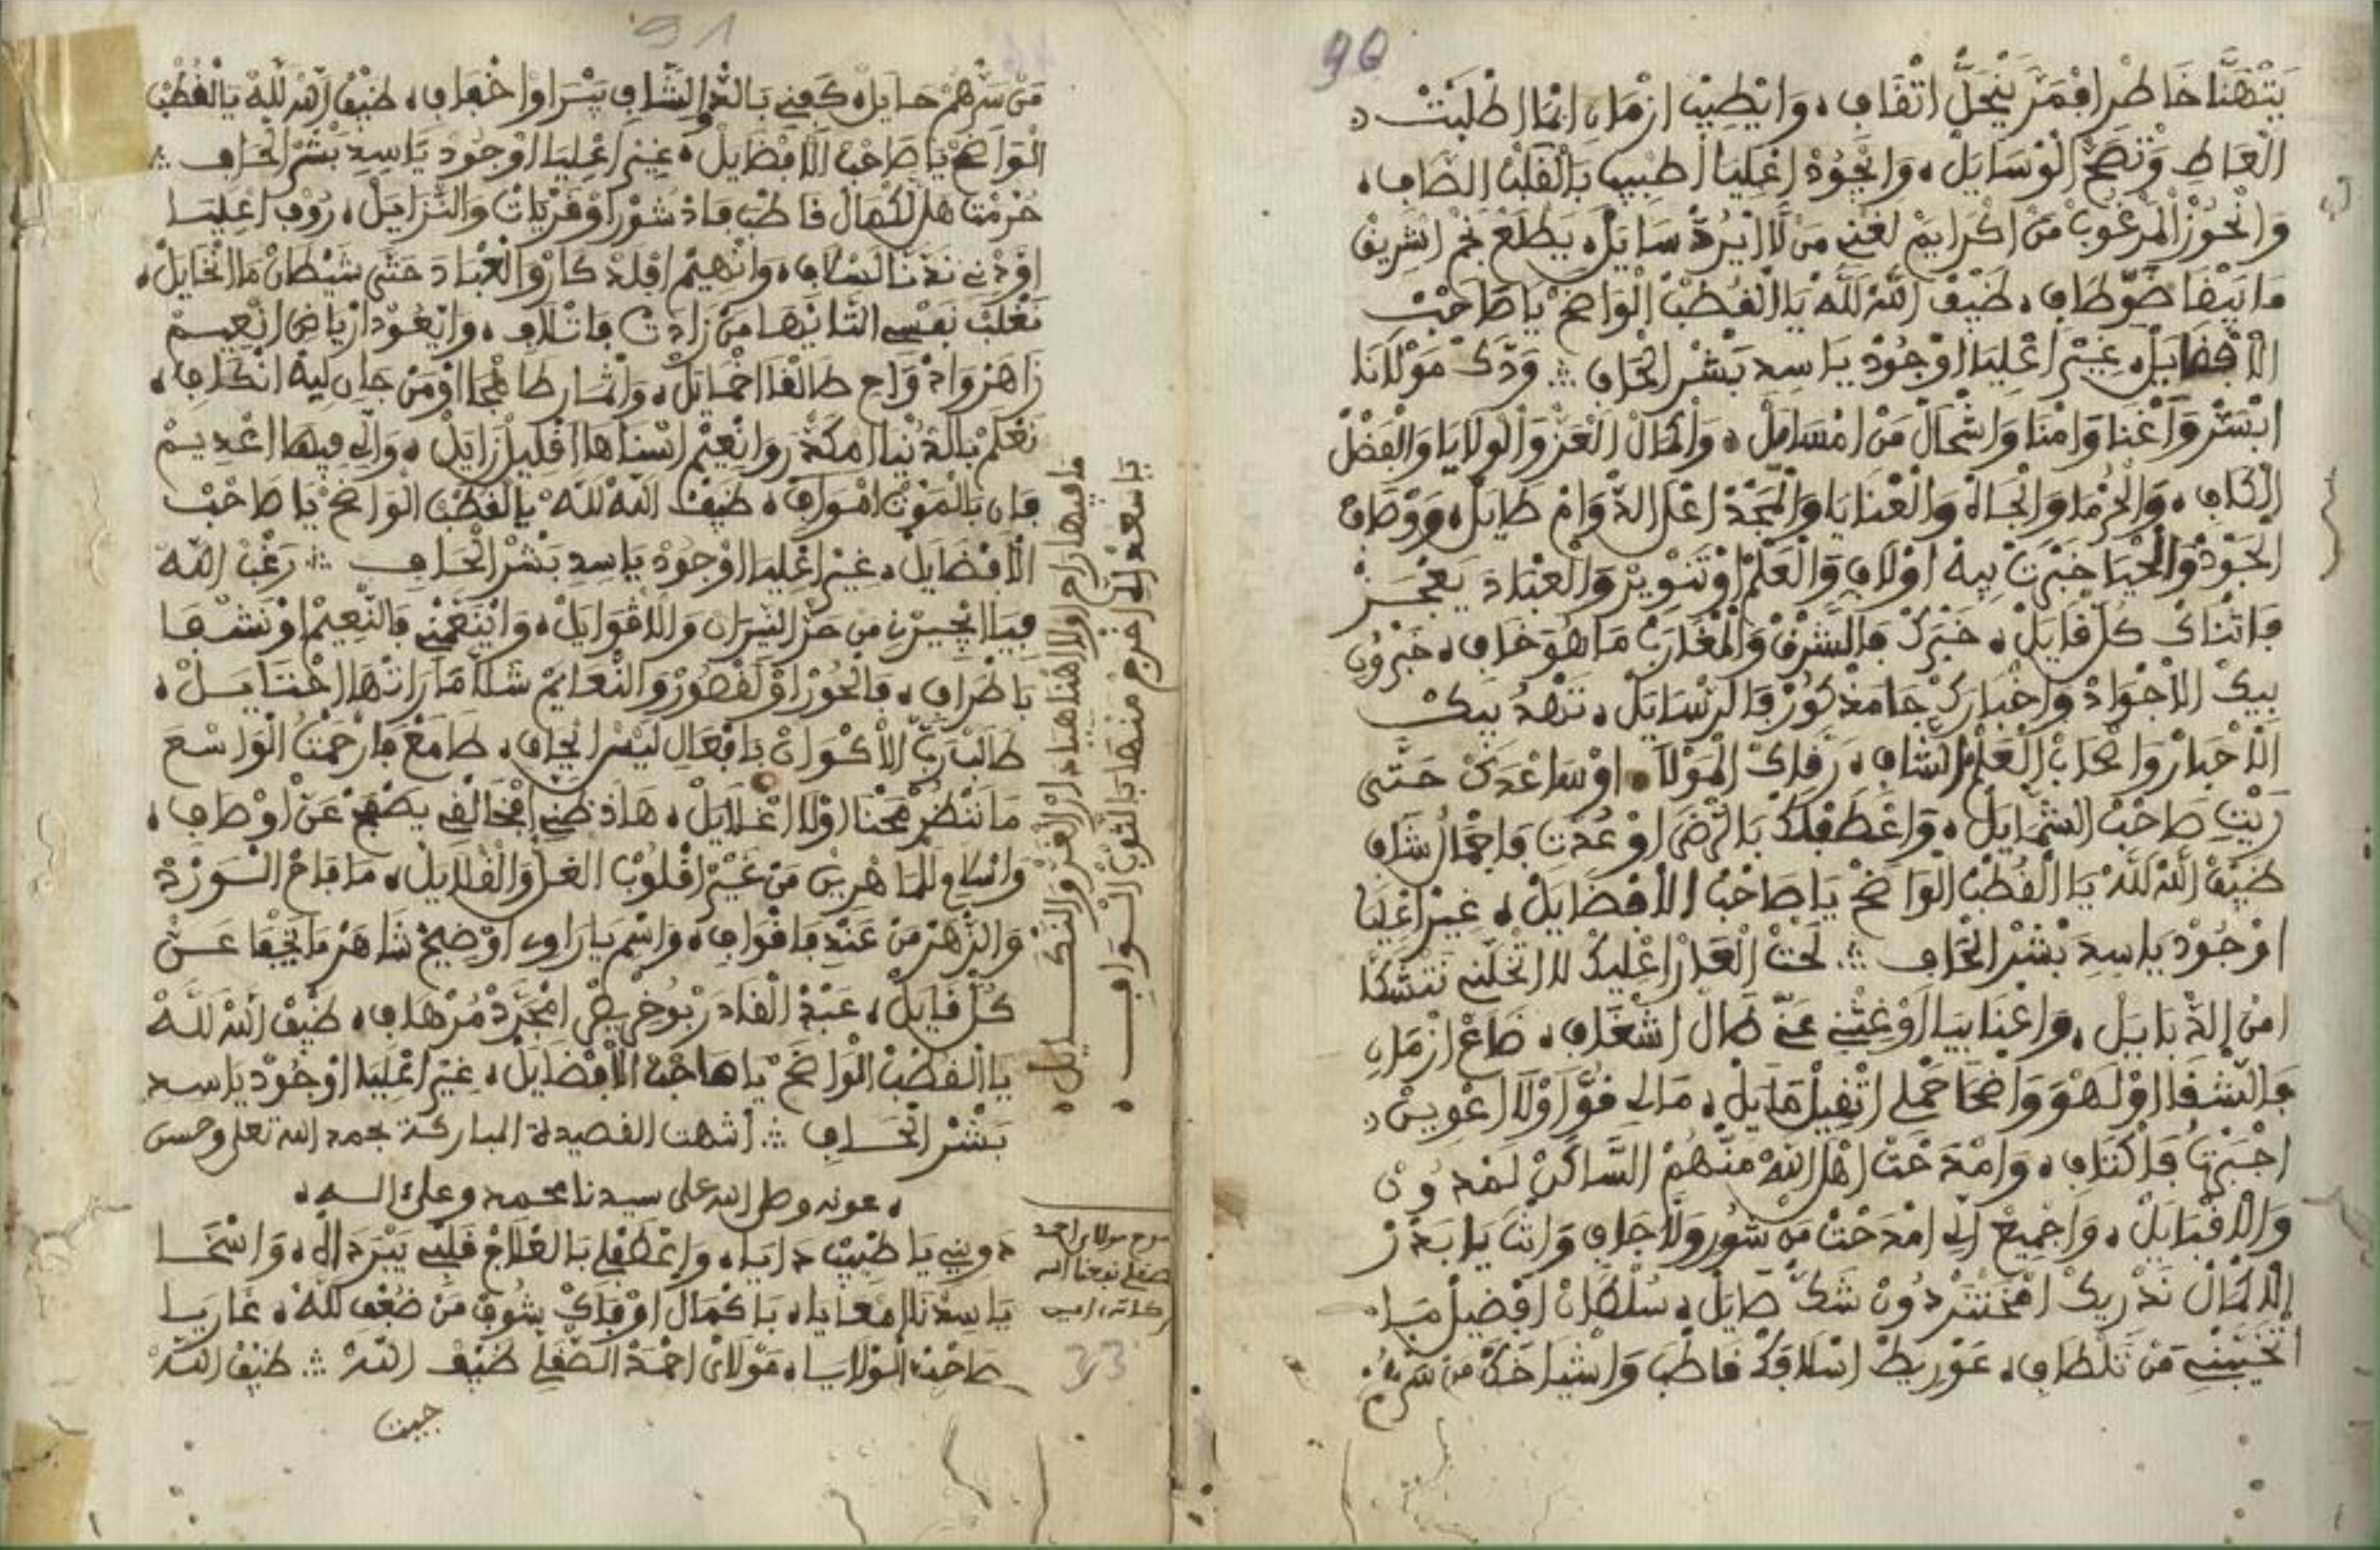 90
يَتْهَنَّا خَاطْرِ اقْمَرْ يَنْجَلَّ اتْفَافِ، وَايْطِيبْ ازْمَانِ انَّا اطْلَبْتْ
الْعَاطِ وَتْصَحّ الْوْسَايَلْ، وَاتْجُودْ اعْلِيَا اطْبِيبِ بَالْقَلْبْ الصَّافِ،
وَانْحُوزْ الْمَرْغُوبْ مَنْ اكْرَايَمْ لغْنِي مَنْ لَا ايْرُدّْ سَايَلْ، يَطْلَعْ نَجْمْ اشْرِيقْ
مَا يَبْقَا ضَوّ طَافِ، ضَيْفْ اللَّهْ لَلَّهْ يَا الْقُطْبْ الْوَاضَحْ يَا صَاحَبْ
الْأَفْضَايَلْ، غِيرْ اعْلِيَا اوْجُودْ يَا سِيدِ بَشْرْ الْحَافِ ؞ وَدَّكْ مَوْلَانَا
ابْسَرّْ وَاغْنَا وَامْنَا وَاشْحَالْ مَنْ امْسَايَلْ، وَالْمَالْ الْعَزّْ وَالْوِلَايَا وَالْفَضْلْ
الْكَافِ، وَالْحُرْمَا وَالْجَاهْ وَالْعْنَايَا وَالْمَجْدْ اعْلَ الدّْوَامْ طَايَلْ، وَوْصَافْ
الْجَوْدْ وَالْحْيَا خَبْرَتْ بِيهْ اوْلَافِ وَالْعَلْمْ اوْتَنْوِيرْ وَالْعْبَادَ يَعْجَزْ
فَاثْنَاكْ كُلّْ قَايَلْ، خَبْرَكْ فَالشَّرْقْ وَالْمْغَارَبْ مَا هُوَ خَافِ، خَبْرُونِ
بِيكْ الْأَجْوَادْ وَاخْبَارَكْ جَا مَذْكُورْ فَالرّْسَايَلْ، تَشْهَدْ بِيكْ
الْأَحْبَارْ وَاصْحَابْ الْعَلْمْ الشَّافِ، رَقَّاكْ الْمَوْلَا اوْسَاعْدَكْ حَتَّى
رَيْتِ صَاحَبْ الشّْمَايَلْ، وَاعْطَفْ لَكْ بَالرّْضَى اوْعُدْتِ فَاجْمَالْ شَافِ
ضَيْفْ اللَّهْ لَلَّهْ يَا الْقُطْبْ الْوَاضَحْ يَا صَاحَبْ الْأَفْضَايَلْ، غِيرْ اعْلِيَا
اوْجُودْ يَا سِيدِ بَشْرْ الْحَافِ ؞ لَحْتْ الْعَارْ اعْلِيكْ لَا اتْخَلِّنِي نَتْشَكَّا
امْنْ الدّْبَايَلْ، وَاعْنَا بِيَا اوْغِثْنِي عَنِّي طَالْ اشْغَافِ، ضَاعْ ازْمَانِ
فَالشّْقَا اوْلَهْوَ وَاضْحَا حَمْلِي اثْقِيلْ مَايَلْ، مَا لِي قُوَّا اوْلَا اعْوِينْ
اجْبَرْتْ فَاكْتَافِ، وَامْدَحْتْ اهْلَ اللَّهْ مَنْهُمْ السَّاكَنْ لَمْدُونْ
وَالْاقْبَايَلْ، وَاجْمِيعْ الِّ امْدَحْتْ مَنْ سُورْ وَلَا جَافِ وَانْتَ يَا بَدْرْ
الْاكْمَالْ نَدْرِيكْ امْخَنْتَرْ دُونْ شَكّْ صَايَلْ، سُلْطَانْ افْضِيلْ مَا
اتْخَيَّبْنِي مَنْ تَلْطَافِ، عَوْرِيطْ اسْلَافَكْ قَاطْبَ وَاشْيَاخَكْ مَنْ سَرّْهُمْ
91
مَنْ سَرّْهُمْ حَايَلْ، كَفِينِي بَالدّْوَا الشَّافِ يَبْرَاوْا اخْفَافِ، ضَيْفْ اللَّهْ لَلَّهْ يَا الْقُطْبْ
الْوَاضَحْ يَا صَاحَبْ الْأَفْضَايَلْ، غِيرْ اعْلِيَا اوْجُودْ يَا سِيدِ بَشْرْ الْحَافِ ؞
حُرْمَتْ هْلْ الْكْمَالْ قَاطْبَ فَاذْشُورْ اوْقَرْيَاتْ وَالنّْزَايَلْ، رُوفِ اعْلِيَا
اوْدْنِي نَدْنَا لَسْلَافِ، وَانْهِيمْ افْلَذْكَارْ وَالْعْبَادَ حَتَّى شَيْطَانْ مَا اتْخَايَلْ،
نَغْلَبْ نَفْسِي التَّايْهَا مَنْ زَادَتْ فَاتْلَافِ، وَانْعُودْ ازْيَاضْ انْعِيمْ
زَاهَرْ وَادْوَاحِ طَالْقَا اخْمَايَلْ، وَاثْمَارْ طَافْحَا اوْمَنْ جَانِ لِيهْ انْكَافِ،
نَعْلَمْ بَالدُّنْيَا امْكَدّْرَ وَانْعِيمْ اسْنَاهَا اقْلِيلْ زَايَلْ، وَالِّ فِيهَا اعْدِيمْ
فَانِ بَالْمَوْتْ امْوَافِ، ضَيْفْ اللَّهْ لَلَّهْ يَا الْقُطْبْ الْوَاضَحْ يَا صَاحَبْ
الْأَفْضَايَلْ، غِيرْ اعْلِيَا اوْجُودْ يَا سِيدِ بَشْرْ الْحَافِ ؞ رَغْبْ اللَّهْ
فِيَا ايْجِيرْنِي مَنْ حَرّْ النِّيرَانْ وَالْاقْوَايَلْ، وَايْنَعَّمْنِي فَالنّْعِيمْ اوْنَشْفَا
بَاطْرَافِ، فَالْحُورْ اوْلَقْصُورْ وَالنّْعَايَمْ شَلَّا مَا رَاتْهَا اخْتَايَلْ،
طَالَبْ رَبّْ الْأَكْوَانْ بَافْعَالِ لَيْسْ ايْجَافِ، طَامَعْ فَارْحَمْتُ الْوَاسْعَ
مَا نَنْظُرْ مَحْنَا اوْلَا اغْلَايَلْ، هَاذْ ظَنِّي افْخَالْقِي يَصْفَحْ عَنْ اوْصَافِ،
وَاسْلَامِي لَلْمَاهْرِينْ مَنْ غِيرْ اقْلُوبْ الْغَلّْ وَالْقْلَايَلْ، مَا فَاحْ الْسَوْرْدْ
وَالزّْهَرْ مَنْ عَنْدِ فَاقْوَافِ، وَاسْمِ يَا رَاوِي اوْضِيحْ شَاهَرْ مَا يَخْفَا عَنْ
كُلّْ قَايَلْ، عَبْدْ الْقَادَرْ بُوخْرِيصْ امْجَرَّدْ مُرْهَافِ، ضَيْفْ اللَّهْ لَلَّهْ
يَا الْقُطْبْ الْوَاضَحْ يَا صَاحَبْ الْأَفْضَايَلْ، غِيرْ اعْلِيَا اوْجُودْ يَا سِيدِ
بَشْرْ الْحَافِ ؞ انتهت القصيدة المباركة بحمد الله تعلى وحسن
، عونه وصلى الله على سيدنا محمد وعلى اله ،
دَوِينِي يَا طْبِيبْ دَايَا، وَاعْطَفْ لِي بَالْعْلَاجْ قَلْبِي يَبْرَ دَالَّهْ، وَاسْخَا
يَا سِيدْنَا امْعَايَا، يَا كْمَالْ اوْفَاكْ شُوفْ مَنْ ضُعْفِ لَلَّهْ، غَارَ يَا
صَاحَبْ الْوْلَايَا، مَوْلَايْ احْمَدْ الصّْقَلِّي ضَيْفْ اللَّهْ ؞ ضَيْفْ اللَّهْ
جيت
مَا فِيهَا رَاحَ اوْلَا اهْنَا هِيَّا دَارْ الْغَرّْ وَالنّْكَايَلْ،
يَا سَعْدْ الِّ اخْرَجْ مَنْهَا بَالثَّوْبْ السَّوَافِ،
مولاي احمد
الصقلي نفعنا الله
امين
33